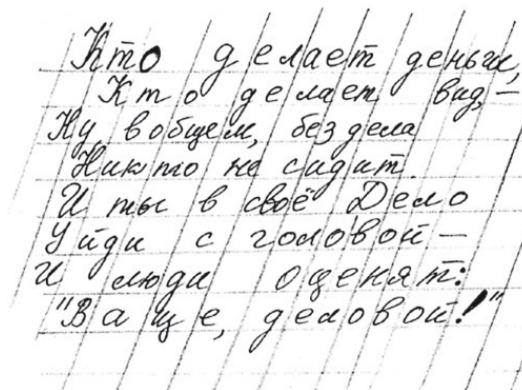 Кто делает деньги,
Кто делает вид, –
Ну вобщем, без дела
Никто не сидит.
И ты в своё Дело
Уйди с головой –
И люди оценят:
"Ва ще, деловой!"